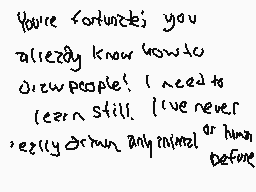 You're fortunate; you
already know how to
draw people! I need to
learn still. I've never
really drawn any animal or human
before